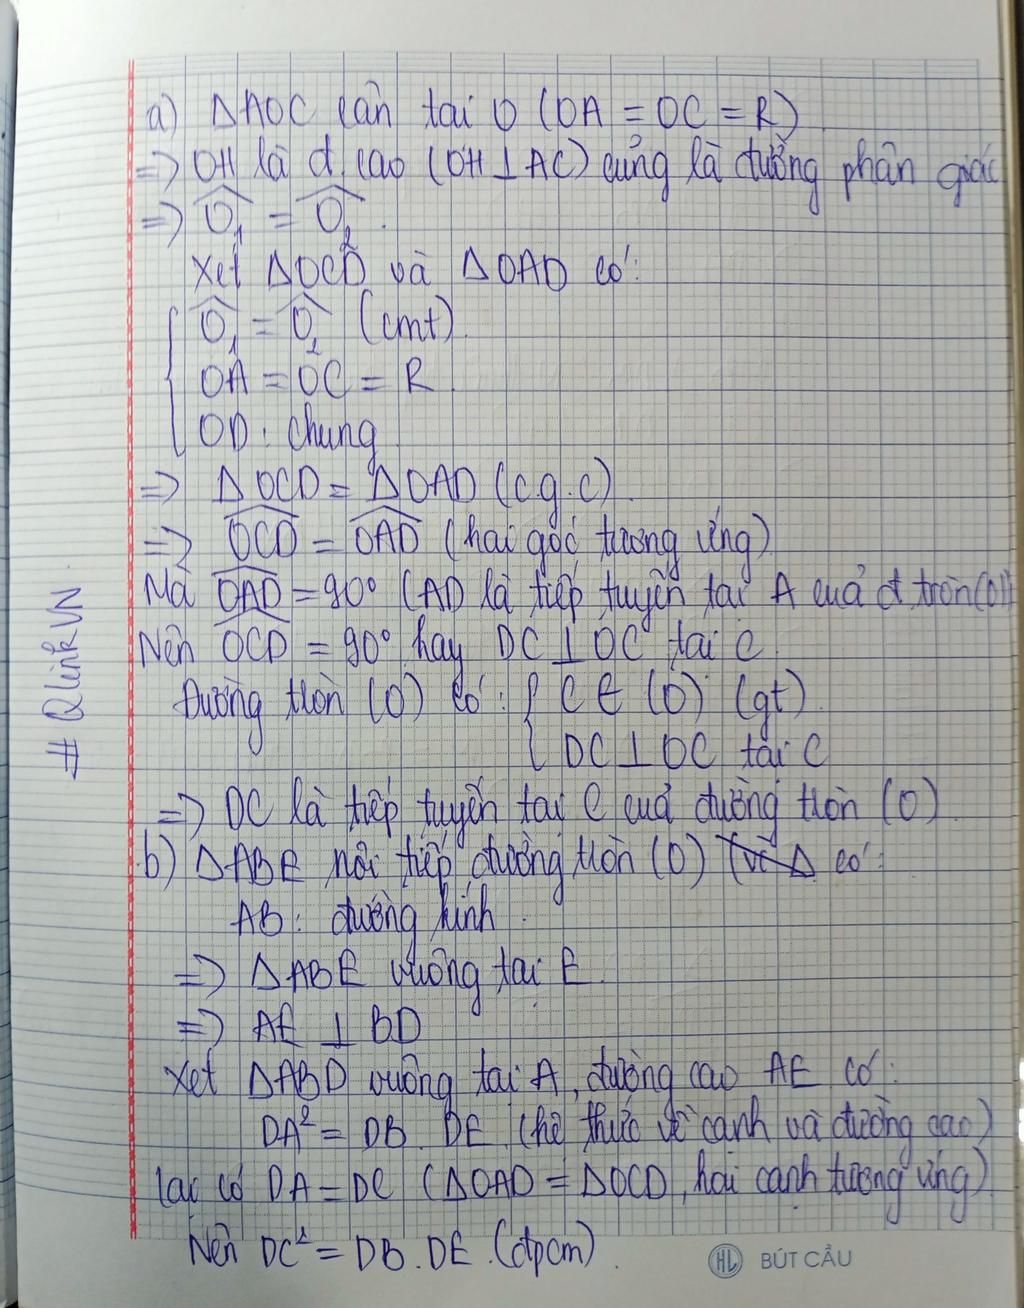 a) ΔAOC cân tại O (OA = OC = R)
=> OH là đ. cao (OH ⊥ AC) cũng là đường phân giác
=> Ô₁ = Ô₂.
Xét ΔOCD và ΔOAD có:
Ô₁ = Ô₂ (cmt)
OA = OC = R
OD: chung
=> ΔOCD = ΔOAD (c.g.c)
=> \widehat{OCD} = \widehat{OAD} (hai góc tương ứng)
Mà \widehat{OAD} = 90° (AD là tiếp tuyến tại A của đ tròn (O))
Nên \widehat{OCD} = 90° hay DC ⊥ OC tại C
Đường tròn (O) có: { C ∈ (O) (gt)
DC ⊥ OC tại C
=> DC là tiếp tuyến tại C của đường tròn (O)
b) ΔABE nội tiếp đường tròn (O) có:
AB: đường kính
=> ΔABE vuông tại E.
=> AE ⊥ BD
Xét ΔABD vuông tại A, đường cao AE có:
DA² = DB. DE (hệ thức về cạnh và đường cao)
Lại có DA = DC (ΔOAD = ΔOCD, hai cạnh tương ứng)
Nên DC² = DB. DE. (đpcm).
# QlinkVN
HL BÚT CẦU